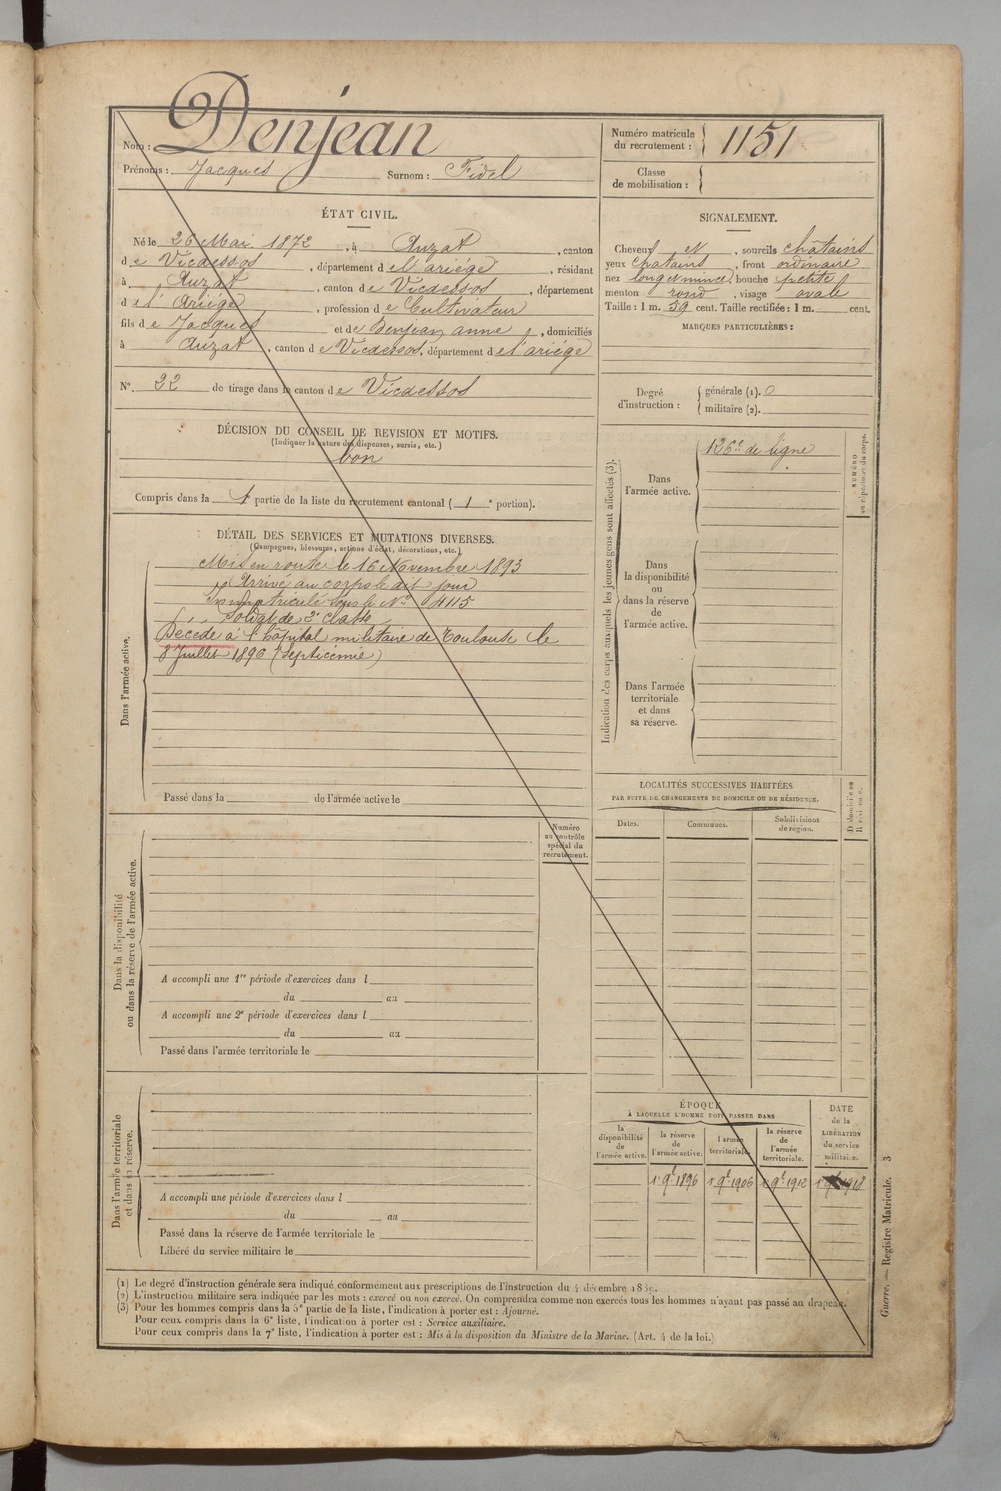 Nom : Denjean
Prénoms : Jacques Surnom : Fidel
Numéro matricule
du recrutement : 1151
Classe
de mobilisation :
ÉTAT CIVIL.
Né le 26 Mai 1872, à Auzat, canton
de Vicdessos, département de l'ariége, résidant
à Auzat, canton de Vicdessos, département
de l'Ariége, profession de Cultivateur
fils de Jacques et de Denjean anne, domiciliés
à Auzat, canton de Vicdessos, département de l'ariége
N° 22 de tirage dans le canton de Vicdessos
DÉCISION DU CONSEIL DE REVISION ET MOTIFS.
(Indiquer la nature des dispenses, sursis, etc.)
bon
Compris dans la 1e partie de la liste du recrutement cantonal (1e portion).
SIGNALEMENT.
Cheveux N, sourcils chatains
yeux chatains, front ordinaire
nez long et mince, bouche petite
menton rond, visage ovale
Taille : 1 m. 59 cent. Taille rectifiée : 1 m. cent.
MARQUES PARTICULIÈRES :
Degré
d'instruction :
générale (1). 0
militaire (2).
DÉTAIL DES SERVICES ET MUTATIONS DIVERSES.
(Campagnes, blessures, actions d'éclat, décorations, etc.)
Dans l'armée active.
Mis en route le 16 Novembre 1893
Arrivé au corps le dit jour
immatriculé sous le N° 4115
Soldat de 2e classe
Décédé à l'hôpital militaire de Toulouse le
8 Juillet 1896 (Septicémie)
Passé dans la de l'armée active le
Indication des corps auxquels les jeunes gens sont affectés (3).
NUMÉRO
au répertoire du corps.
Dans
l'armée active.
126e de ligne
Dans
la disponibilité
ou
dans la réserve
de
l'armée active.
Dans l'armée
territoriale
et dans
sa réserve.
LOCALITÉS SUCCESSIVES HABITÉES
PAR SUITE DE CHANGEMENTS DE DOMICILE OU DE RÉSIDENCE.
Dates.
Communes.
Subdivisions
de région.
D domicile ou
R résidence.
Numéro
au contrôle
spécial du
recrutement.
Dans la disponibilité
ou dans la réserve de l'armée active.
A accompli une 1re période d'exercices dans l
du au
A accompli une 2e période d'exercices dans l
du au
Passé dans l'armée territoriale le
Dans l'armée territoriale
et dans sa réserve.
A accompli une période d'exercices dans l
du au
Passé dans la réserve de l'armée territoriale le
Libéré du service militaire le
ÉPOQUE
À LAQUELLE L'HOMME DOIT PASSER DANS
la
disponibilité
de
l'armée active.
la réserve
de
l'armée active.
l'armée
territoriale.
la réserve
de
l'armée
territoriale.
DATE
de la
LIBÉRATION
du service
militaire.
1 9bre 1896 1 9bre 1906 1 9bre 1912 1918
(1) Le degré d'instruction générale sera indiqué conformément aux prescriptions de l'instruction du 4 décembre 1889.
(2) L'instruction militaire sera indiquée par les mots : exercé ou non exercé. On comprendra comme non exercés tous les hommes n'ayant pas passé au drapeau.
(3) Pour les hommes compris dans la 5e partie de la liste, l'indication à porter est : Ajourné.
Pour ceux compris dans la 6e liste, l'indication à porter est : Service auxiliaire.
Pour ceux compris dans la 7e liste, l'indication à porter est : Mis à la disposition du Ministre de la Marine. (Art. 4 de la loi.)
Guerre. — Registre Matricule. 3